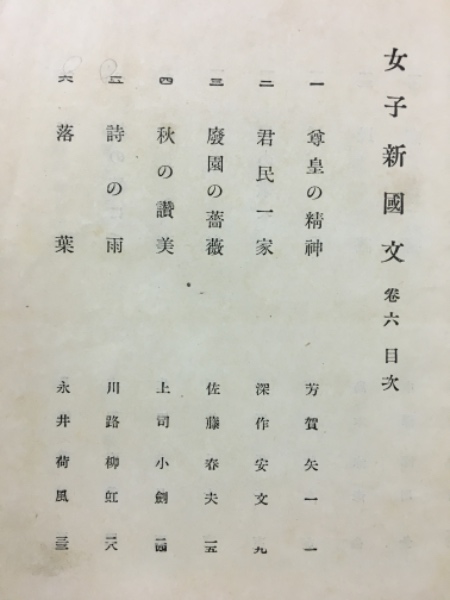 女子新國文 卷六 目次
一 尊皇の精神 芳賀矢一 一
二 君民一家 深作安文 九
三 廢園の薔薇 佐藤春夫 一五
四 秋の讚美 上司小劍 二四
五 詩の雨 川路柳虹 二八
六 落葉 永井荷風 三三